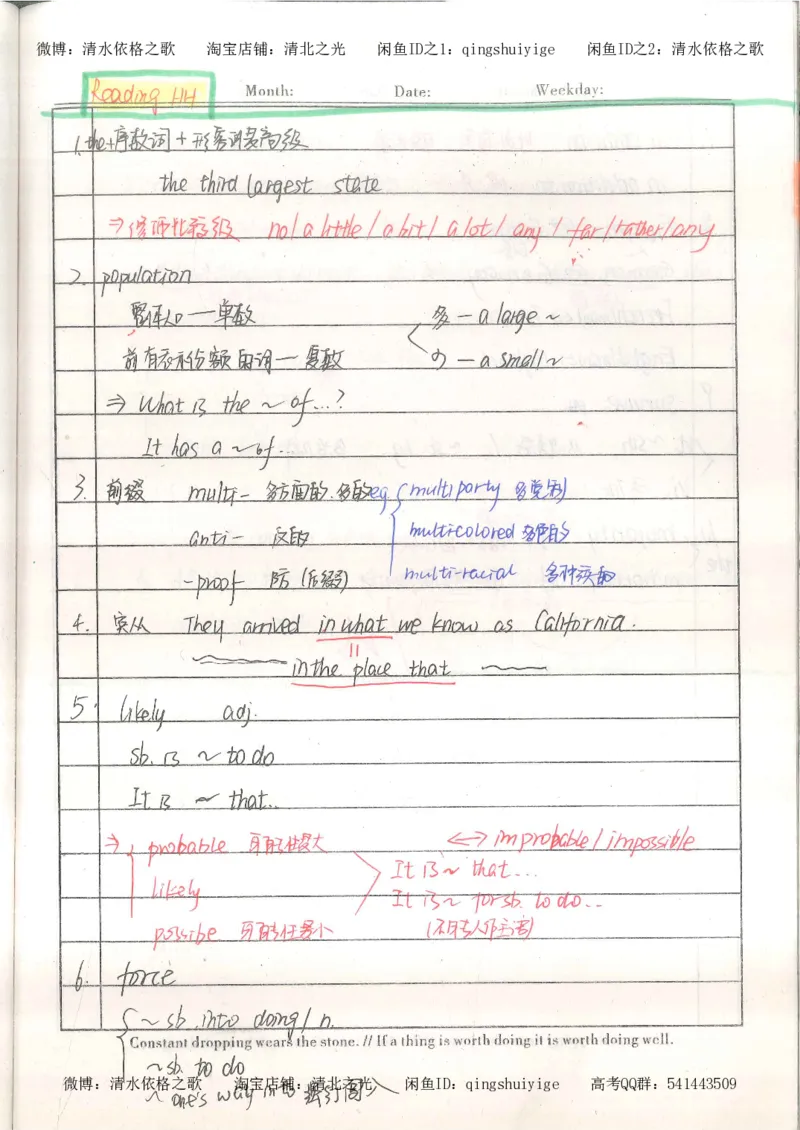 微博：清水依格之歌 淘宝店铺：清北之光 闲鱼ID之1：qingshuiyige 闲鱼ID之2：清水依格之歌
Reading
Month: Date: Weekday:
1. the+序数词+形容词最高级
the third largest state
⇒修饰比较级 no/a little/a bit/a lot/any/far/rather/any
2. population
整体人口—单数 多—a large~
前有表示份额的词—复数 少—a small~
⇒ What is the ~ of...?
It has a ~ of...
3. 前缀 multi- 多方面的.多的 eg. multiparty 多党制
anti- 反的 multicolored 多色的
-proof 防 (后缀) multi-racial 多种族的
4. 宾从 They arrived in what we know as California.
in the place that
5. likely adj.
sb. is ~ to do
It is ~ that..
⇒ probable 可能性最大 ↔ improbable/impossible
It is ~ that...
likely
It is ~ for sb. to do...
possibe 可能性最小 (不用人作主语)
6. force
~ sb. into doing/n.
Constant dropping wears the stone. // If a thing is worth doing it is worth doing well.
~ sb. to do
微博：清水依格之歌 淘宝店铺：清北之光 闲鱼ID：qingshuiyige 高考QQ群：541443509
~ one's way into